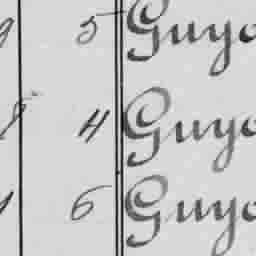 9 5 Guyo
8 4 Guyo
1 6 Guyo